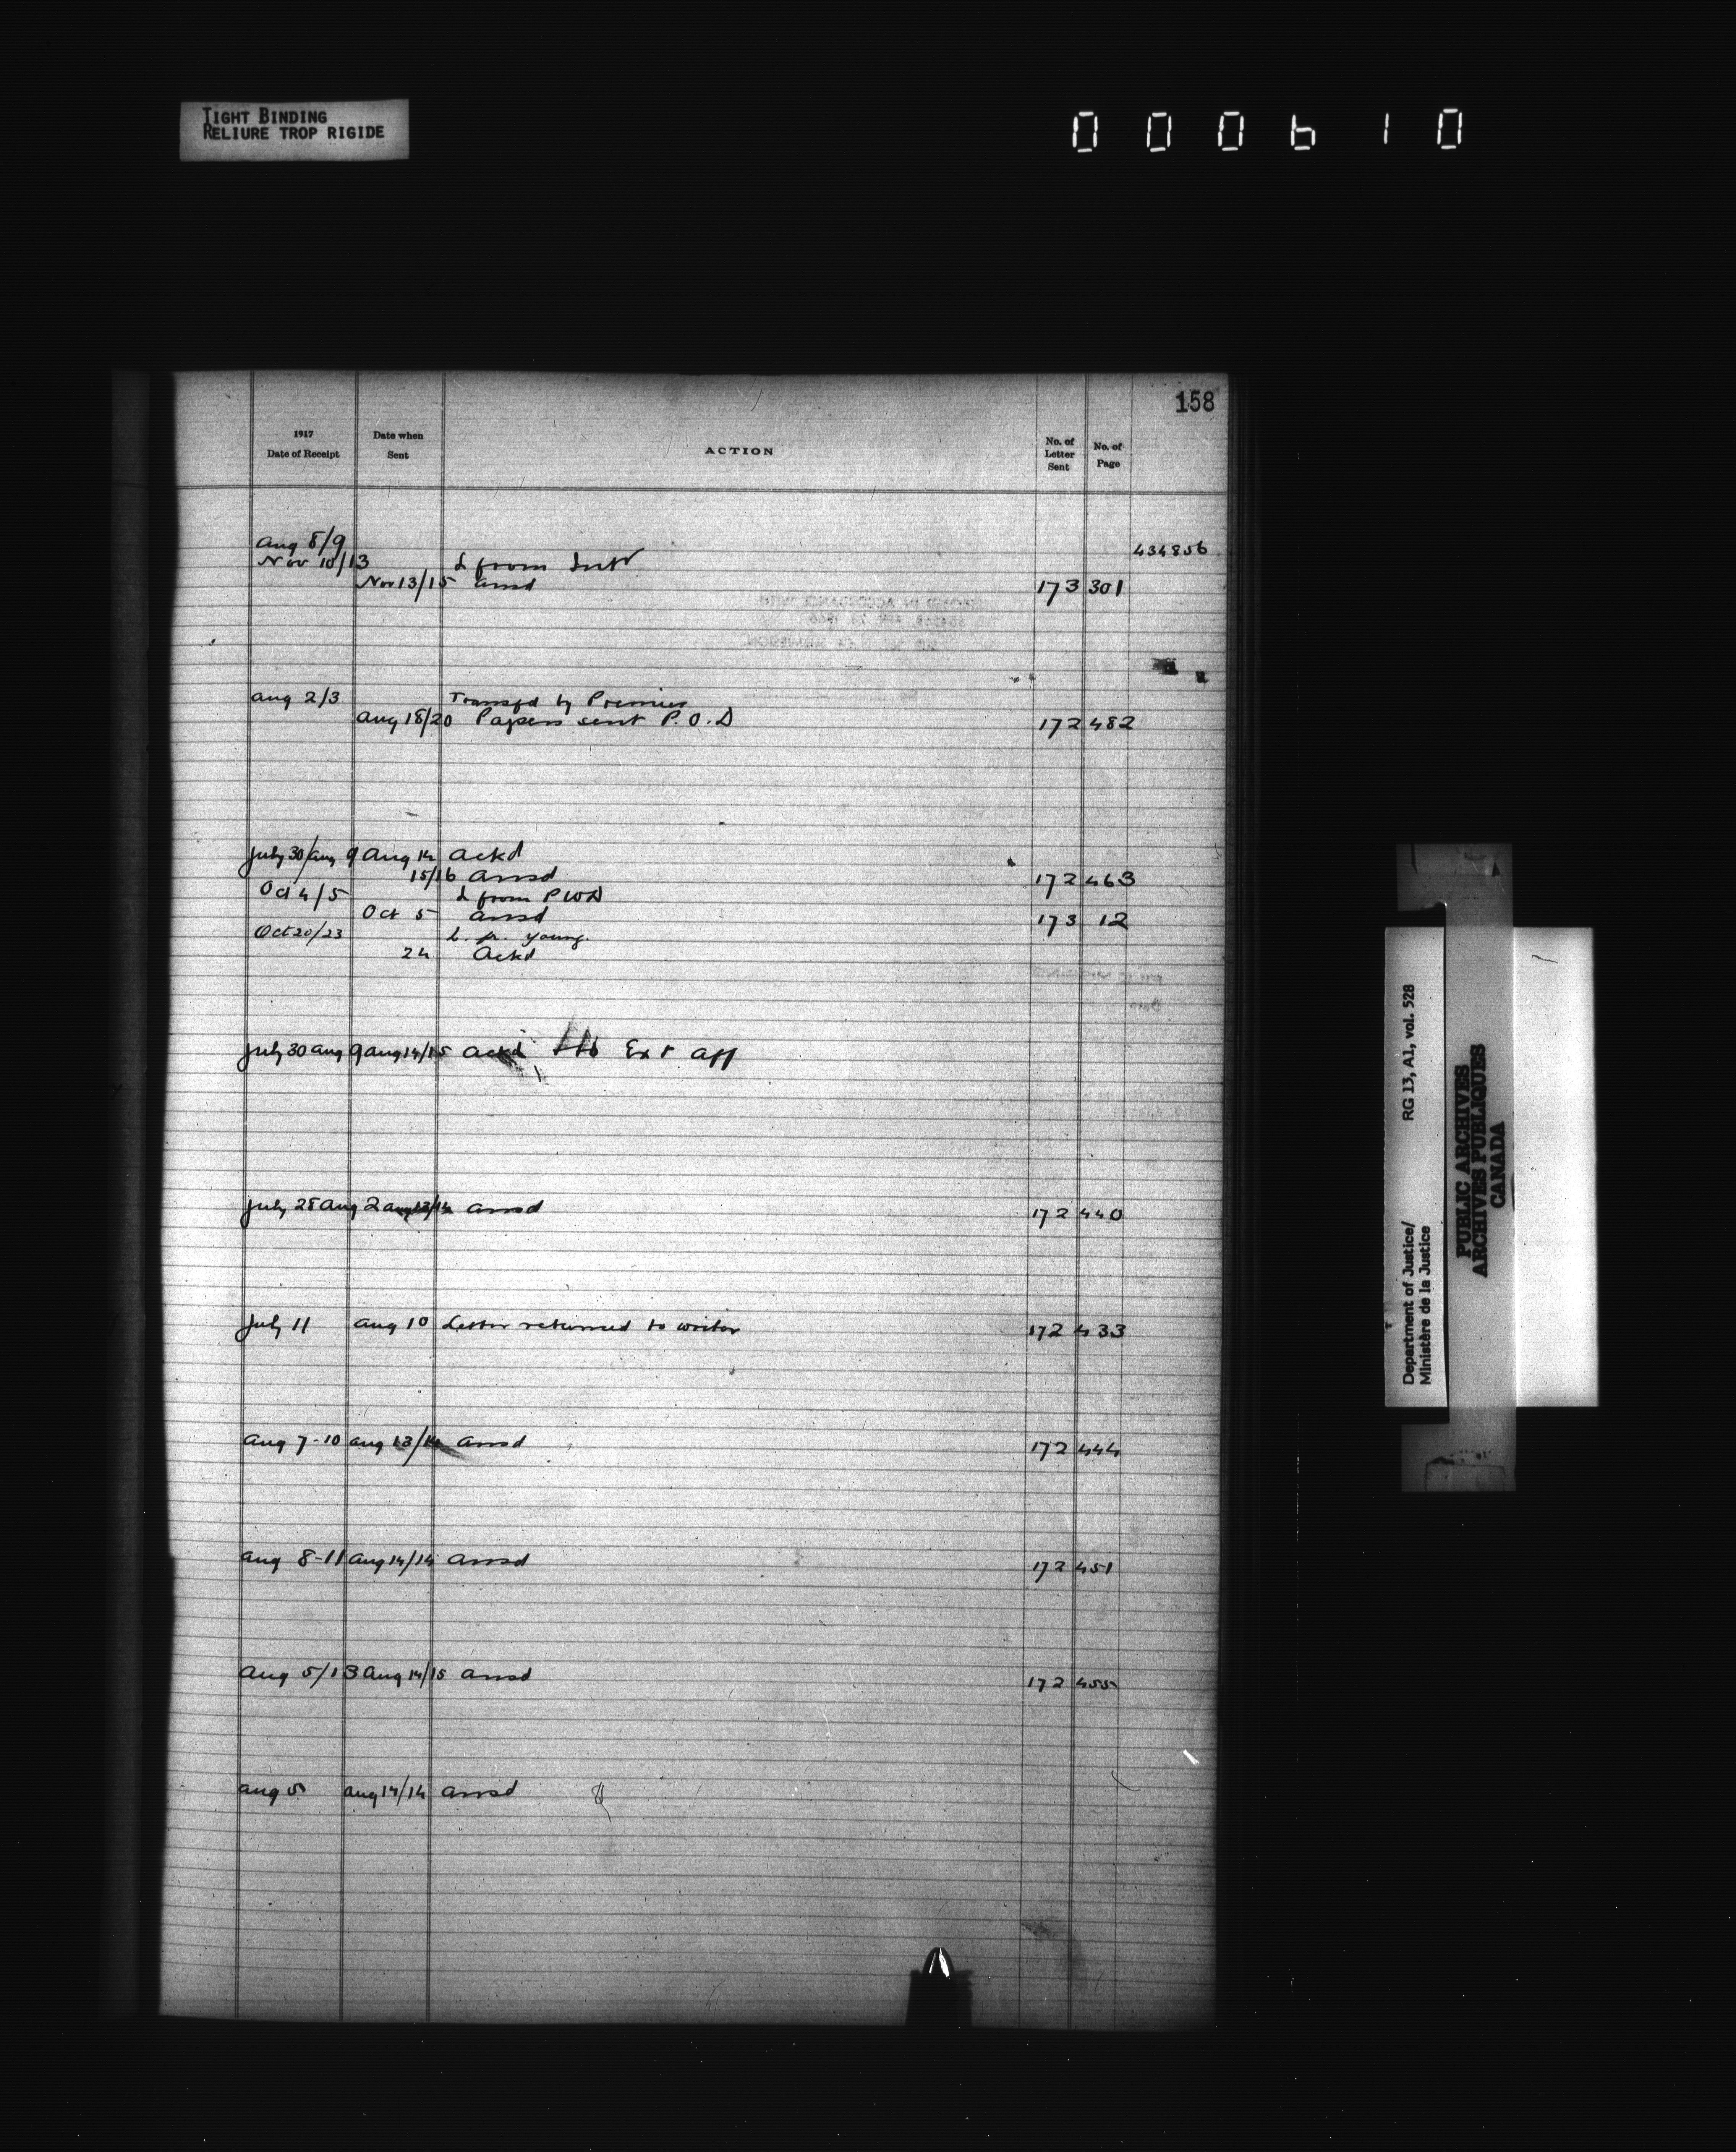 TIGHT BINDING
RELIURE TROP RIGIDE
000610
158
1917
Date of Receipt
Date when
Sent
ACTION
No. of
Letter
Sent
No. of
Page
Aug 8/9 434856
Nov 10/13 L from Intr
Nov 13/15 ansd 173 301
Aug 2/3 Transfd by Premier
Aug 18/20 Papers sent P.O.D 172 482
July 30/Aug 9 Aug 14 Ackd
15/16 Ansd 172 463
Oct 4/5 L from PWD
Oct 5 Ansd 173 12
Oct 20/23 L. fr. Young.
24 Ackd
July 30 Aug 9 Aug 14/15 Ackd Ext Aff
July 28 Aug 2 Aug 13/14 Ansd 172 440
July 11 Aug 10 Letter returned to writer 172 433
Aug 7-10 Aug 13/14 Ansd 172 444
Aug 8-11 Aug 14/14 Ansd 172 451
Aug 5/13 Aug 14/15 Ansd 172 455
Aug 5 Aug 14/14 Ansd
Department of Justice/
Ministère de la Justice
RG 13, A1, vol. 528
PUBLIC ARCHIVES
ARCHIVES PUBLIQUES
CANADA